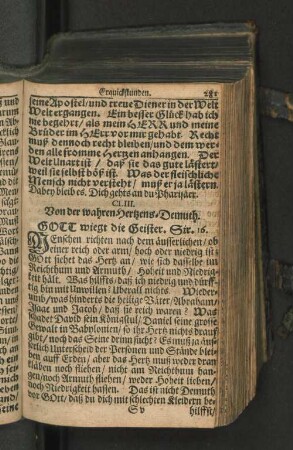 Erquickstunden. 281
seine Apostel/ und treue Diener in der Welt
Welt ergangen. Ein besser Glück hab ich
nie begehrt/ als mein HERR und meine
Brüder im HErrn vor mir gehabt. Recht
muß dennoch recht bleiben/ und dem wer-
den alle fromme Hertzen anhangen. Der
Welt Unart ist/ daß sie das gute lästert/
weil sie selbst böß ist. Was der fleischliche
Mensch nicht versteht/ muß er ja lästern.
Aber bleib es. Dich gehts an du Phariseer.
CLIII.
Von der wahren Hertzens-Demuth.
GOTT wiegt die Geister. Sir. 16.
Menschen richten nach dem äusserlichen/ ob
einer reich oder arm/ hoch oder niedrig ist:
GOtt siehet das Hertz an/ wie sich dasselbe in
Reichthum und Armuth/ Hoheit und Niedrig-
keit hält. Was hilffts/ daß ich niedrig und dürff-
tig bin mit Unwillen? Uberall nichts. Wieder-
umb/ was hinderts die heilige Väter/ Abraham/
Isaac und Jacob/ daß sie reich waren? Was
schadet David sein Königstul/ Daniel seine grosse
Gewalt in Babylonien/ so ihr Hertz nichts drauff
gibt/ noch das Seine drinn sucht? Es muß ja äus-
serlich Unterscheid der Personen und Stände blei-
ben auff Erden/ aber das Hertz muß weder dran
kleben noch fliehen/ nicht am Reichthum han-
gen/ noch Armuth fliehen/ weder Hoheit lieben/
noch Niedrigkeit hassen. Das ist nicht Demuth
vor GOtt/ daß du dich mit schlechten Kleidern be-
S v hilffst/